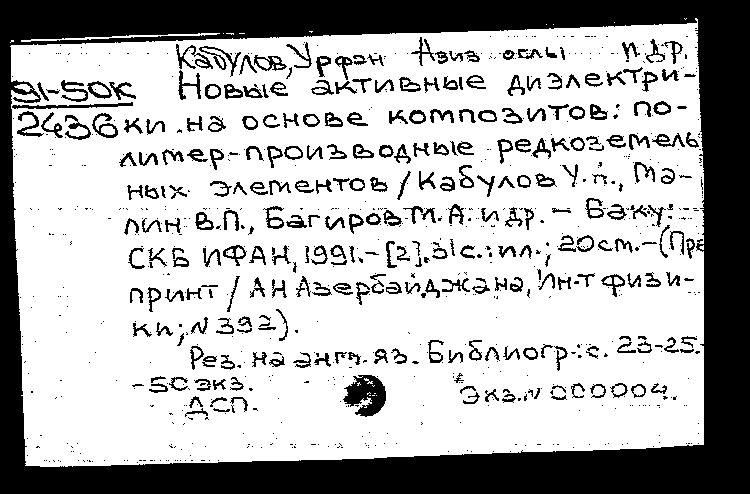 Кабулов, Урфан Азиз оглы и др.
91-50К Новые активные диэлектри-
2436 ки на основе композитов: по-
лимер-производные редкоземель
ных элементов / Кабулов У.А., Ма-
лин В.П., Багиров М.А. и др. - Баку:
СКБ ИФАН, 1991.-[2], 31с.: ил.; 20 см.-(Пре
принт / АН Азербайджана, Ин-т физи-
ки; N 392).
Рез. на англ. яз. Библиогр.: с. 23-25.-
-50 экз.
ДСП. Экз. N 000004.